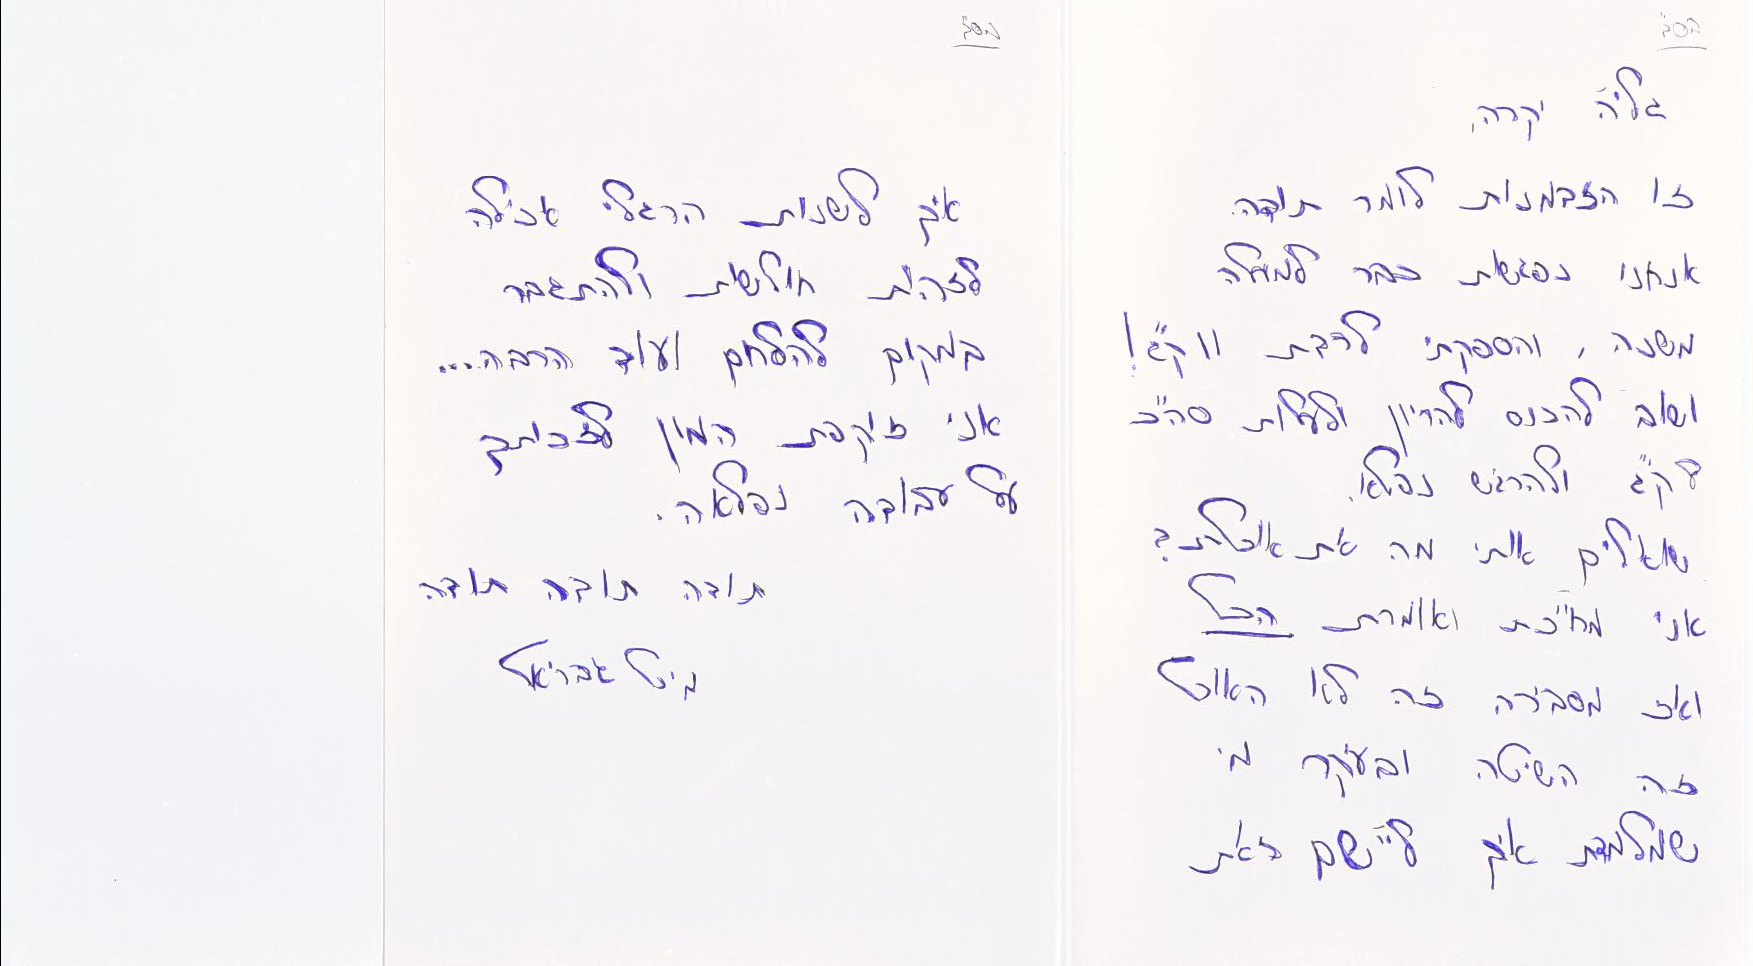 בס"ד
גליה יקרה,
זו הזדמנות לומר תודה.
אנחנו נפגשות כבר למעלה
משנה, והספקתי לרדת 11 ק"ג!
ושוב להכנס להריון ולעלות סה"כ
ק"ג ולהרגיש נפלא.
שואלים אותי מה את אוכלת?
אני מחייכת ואומרת הכל
ואז מסבירה זה לא האוכל
זה השיטה ובעיקר מי
שמלמדת איך ליישם זאת
בס"ד
איך לשנות הרגלי אכילה
לזהות חולשות ולהתגבר
במקום להלחם ועוד הרבה...
אני זוקפת המון לזכותך
על עבודה נפלאה.
תודה תודה תודה
מיכל גבריאל